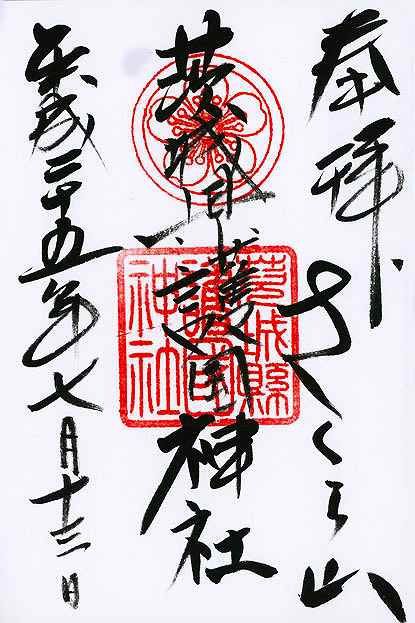 奉拝
さくら山
茨城県護国神社
茨城縣
護國
神社
平成二十五年七月十三日